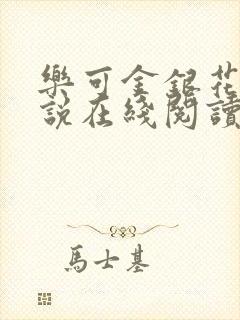 樂可金銀花
說在綫閱讀
馬士基